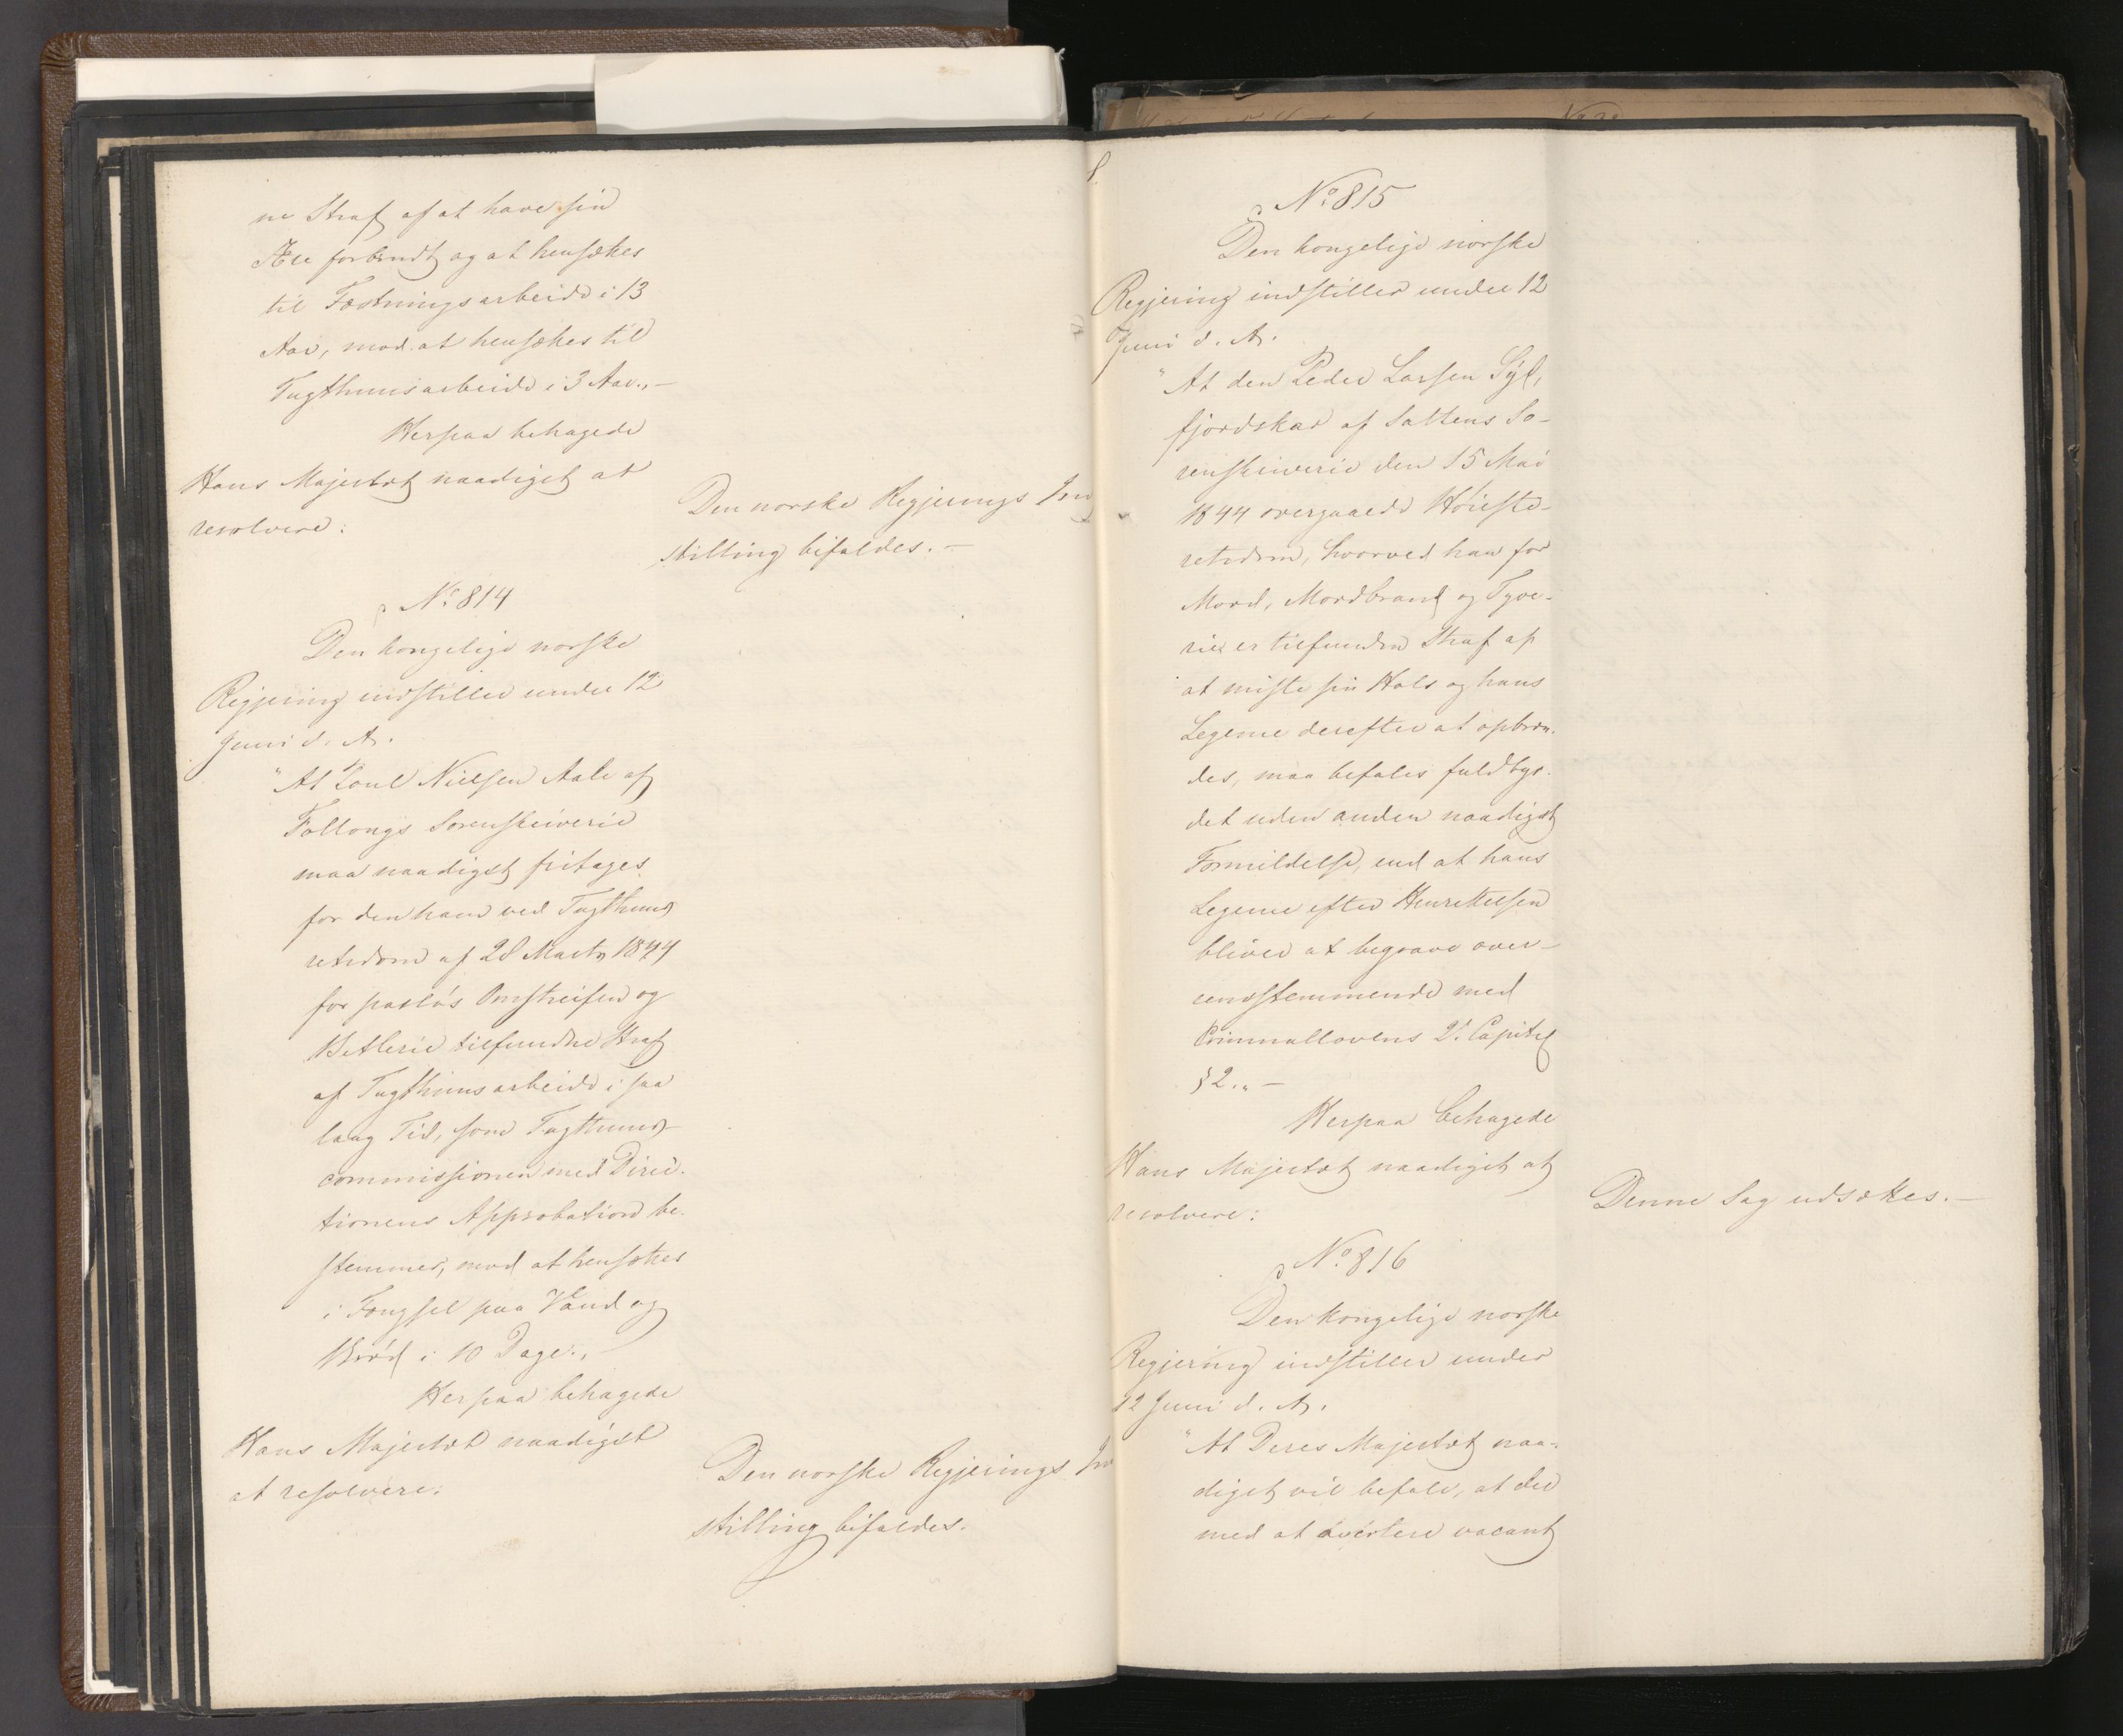 ne Straf af at have sin
Ære forbrudt og at hensættes
til Fæstningsarbeide i 13
Aar, mod at hensættes til
Tugthuusarbeide i 3 Aar.„ —
Herpaa behagede
Hans Majestæt naadigst at
resolvere:
Den norske Regjerings Ind
stilling bifaldes. —
No 814
Den kongelige norske
Regjering indstiller under 12
Juni d. A.
"At Poul Nielsen Aale af
Sorenskriverie
maa naadigst fritages
for den ham ved Tugthuus
retsdom af 28 Marts 1844
for pasløs Omstreifen og
Betlerie tilfundne Straf
af Tugthuusarbeide i saa
lang Tid, som Tugthuus
commissionen med Direc-
tionens Approbation be-
stemmer, mod at hensættes
i Fængsel paa Vand og
Brød i 10 Dage.„ —
Herpaa behagede
Hans Majestæt naadigst
at resolvere:
Den norske Regjerings Ind
stilling bifaldes.
No 815
Den kongelige norske
Regjering indstiller under 12
Juni d. A.
"At den Peder Larsen Syl-
fjordskar af Saltens So-
renskriverie den 15 Mai
1844 overgaaede Høieste-
retsdom, hvorved han for
Mord, Mordbrand og Tyve-
rie er tilfunden Straf af
at miste sin Hals og hans
Legeme derefter at opbræn-
des, maa befales fuldbyr-
det uden anden naadigst
Formildelse, end at hans
Legeme efter Henrettelsen
bliver at begrave over-
eensstemmende med
Criminallovens 2. Capitel
§ 2.„ —
Herpaa behagede
Hans Majestæt naadigst at
resolvere:
Denne Sag udsættes. —
No 816
Den kongelige norske
Regjering indstiller under
12 Juni d. A.
"At Deres Majestæt naa-
digst vil befale, at der
med at avertere vacant